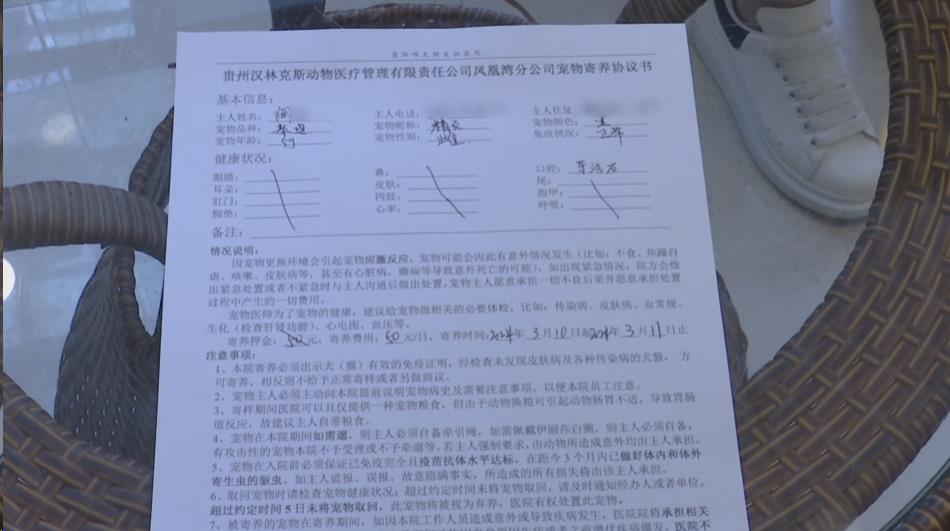 贵州汉林克斯动物医疗管理有限责任公司凤凰湾分公司宠物寄养协议书
基本信息：
主人姓名： 主人电话： 主人住址
宠物品种： 宠物昵称： 宠物颜色：
宠物年龄： 宠物性别： 免疫状况：
健康状况：
眼睛： 鼻： 口腔：牙结石
耳朵： 皮肤： 尾：
肛门： 四肢： 指甲：
脚垫： 心率： 呼吸：
备注：
情况说明：
因宠物更换环境会引起宠物应激反应，宠物可能会因此有意外情况发生（比如：不食、焦躁自
虐、咳嗽、皮肤病等，甚至有心脏病，癫痫等导致意外死亡的可能），如出现紧急情况，院方会做
出紧急处置或者不紧急时与主人沟通后做出处置，宠物主人愿意承担一切不良后果并愿意承担处置
过程中产生的一切费用。
宠物医师为了宠物的健康，建议给宠物做相关的必要体检，比如：传染病、皮肤病、血常规、
生化（检查肝肾功能）、心电图、血压等。
寄养押金：500元，寄养费用：50元/日，寄养时间：2024年3月10日起2024年3月11日止
注意事项：
1、本院寄养必须出示犬（猫）有效的免疫证明，经检查未发现皮肤病及各种传染病的犬猫，方
可寄养，相反则不给予正常寄样或者另做商议。
2、宠物主人必须主动向本院提前说明宠物病史及需要注意事项，以便本院员工注意。
3、寄样期间医院可以且仅提供一种宠物粮食，但由于动物换粮可引起动物肠胃不适，导致胃肠
道反应，故建议主人自带粮食。
4、宠物在本院期间如需遛，则主人必须自备牵引绳，如需佩戴伊丽莎白圈，则主人必须自备，
有攻击性的宠物本院不予受理或不予牵遛等，若主人强制要求，由动物所造成意外均由主人承担。
5、宠物在入院前必须保证已免疫完全且疫苗抗体水平达标，在距今3个月内已做好体内和体外
寄生虫的驱虫。如主人谎报、误报、故意隐瞒事实，所造成的所有损失将由该主人承担。
6、取回宠物时请检查宠物健康状况；超过约定时间未将宠物取回，请及时通知经办人或者单位，
超过约定时间5日未将宠物取回，此宠物将被视为弃养，医院有权处置此宠物。
7、被寄养的宠物在寄养期间，如因本院工作人员造成意外或导致疾病发生，医院院将承担相关